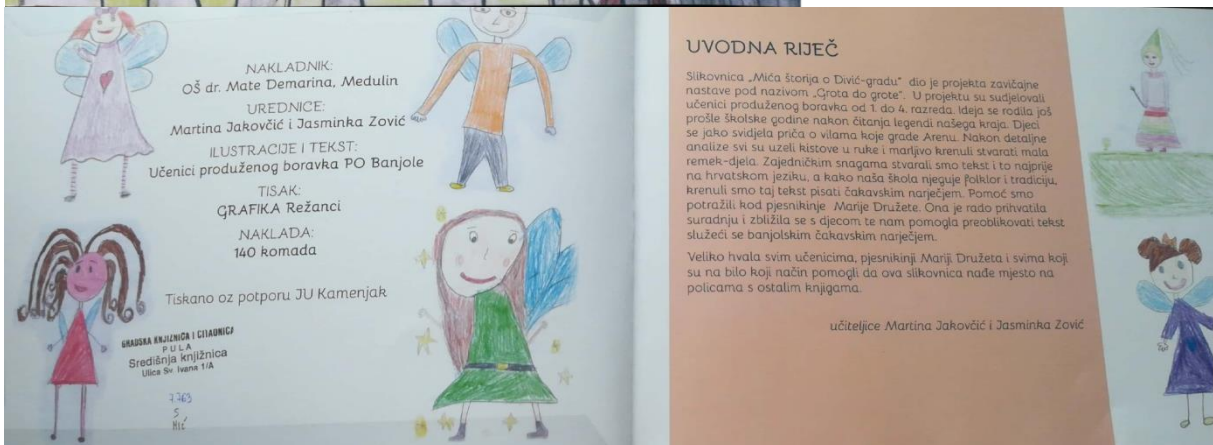 NAKLADNIK:
OŠ dr. Mate Demarina, Medulin
UREDNICE:
Martina Jakovčić i Jasminka Zović
ILUSTRACIJE I TEKST:
Učenici produženog boravka PO Banjole
TISAK:
GRAFIKA Režanci
NAKLADA:
140 komada
Tiskano oz potporu JU Kamenjak
GRADSKA KNJIŽNICA I ČITAONICA
PULA
Središnja knjižnica
Ulica Sv. Ivana 1/A
7.763
S
MIĆ
UVODNA RIJEČ
Slikovnica „Mića štorija o Divić-gradu" dio je projekta zavičajne
nastave pod nazivom „Grota do grote". U projektu su sudjelovali
učenici produženog boravka od 1. do 4. razreda. Ideja se rodila još
prošle školske godine nakon čitanja legendi našega kraja. Djeci
se jako svidjela priča o vilama koje grade Arenu. Nakon detaljne
analize svi su uzeli kistove u ruke i marljivo krenuli stvarati mala
remek-djela. Zajedničkim snagama stvarali smo tekst i to najprije
na hrvatskom jeziku, a kako naša škola njeguje folklor i tradiciju,
krenuli smo taj tekst pisati čakavskim narječjem. Pomoć smo
potražili kod pjesnikinje Marije Družete. Ona je rado prihvatila
suradnju i zbližila se s djecom te nam pomogla preoblikovati tekst
služeći se banjolskim čakavskim narječjem.
Veliko hvala svim učenicima, pjesnikinji Mariji Družeta i svima koji
su na bilo koji način pomogli da ova slikovnica nađe mjesto na
policama s ostalim knjigama.
učiteljice Martina Jakovčić i Jasminka Zović